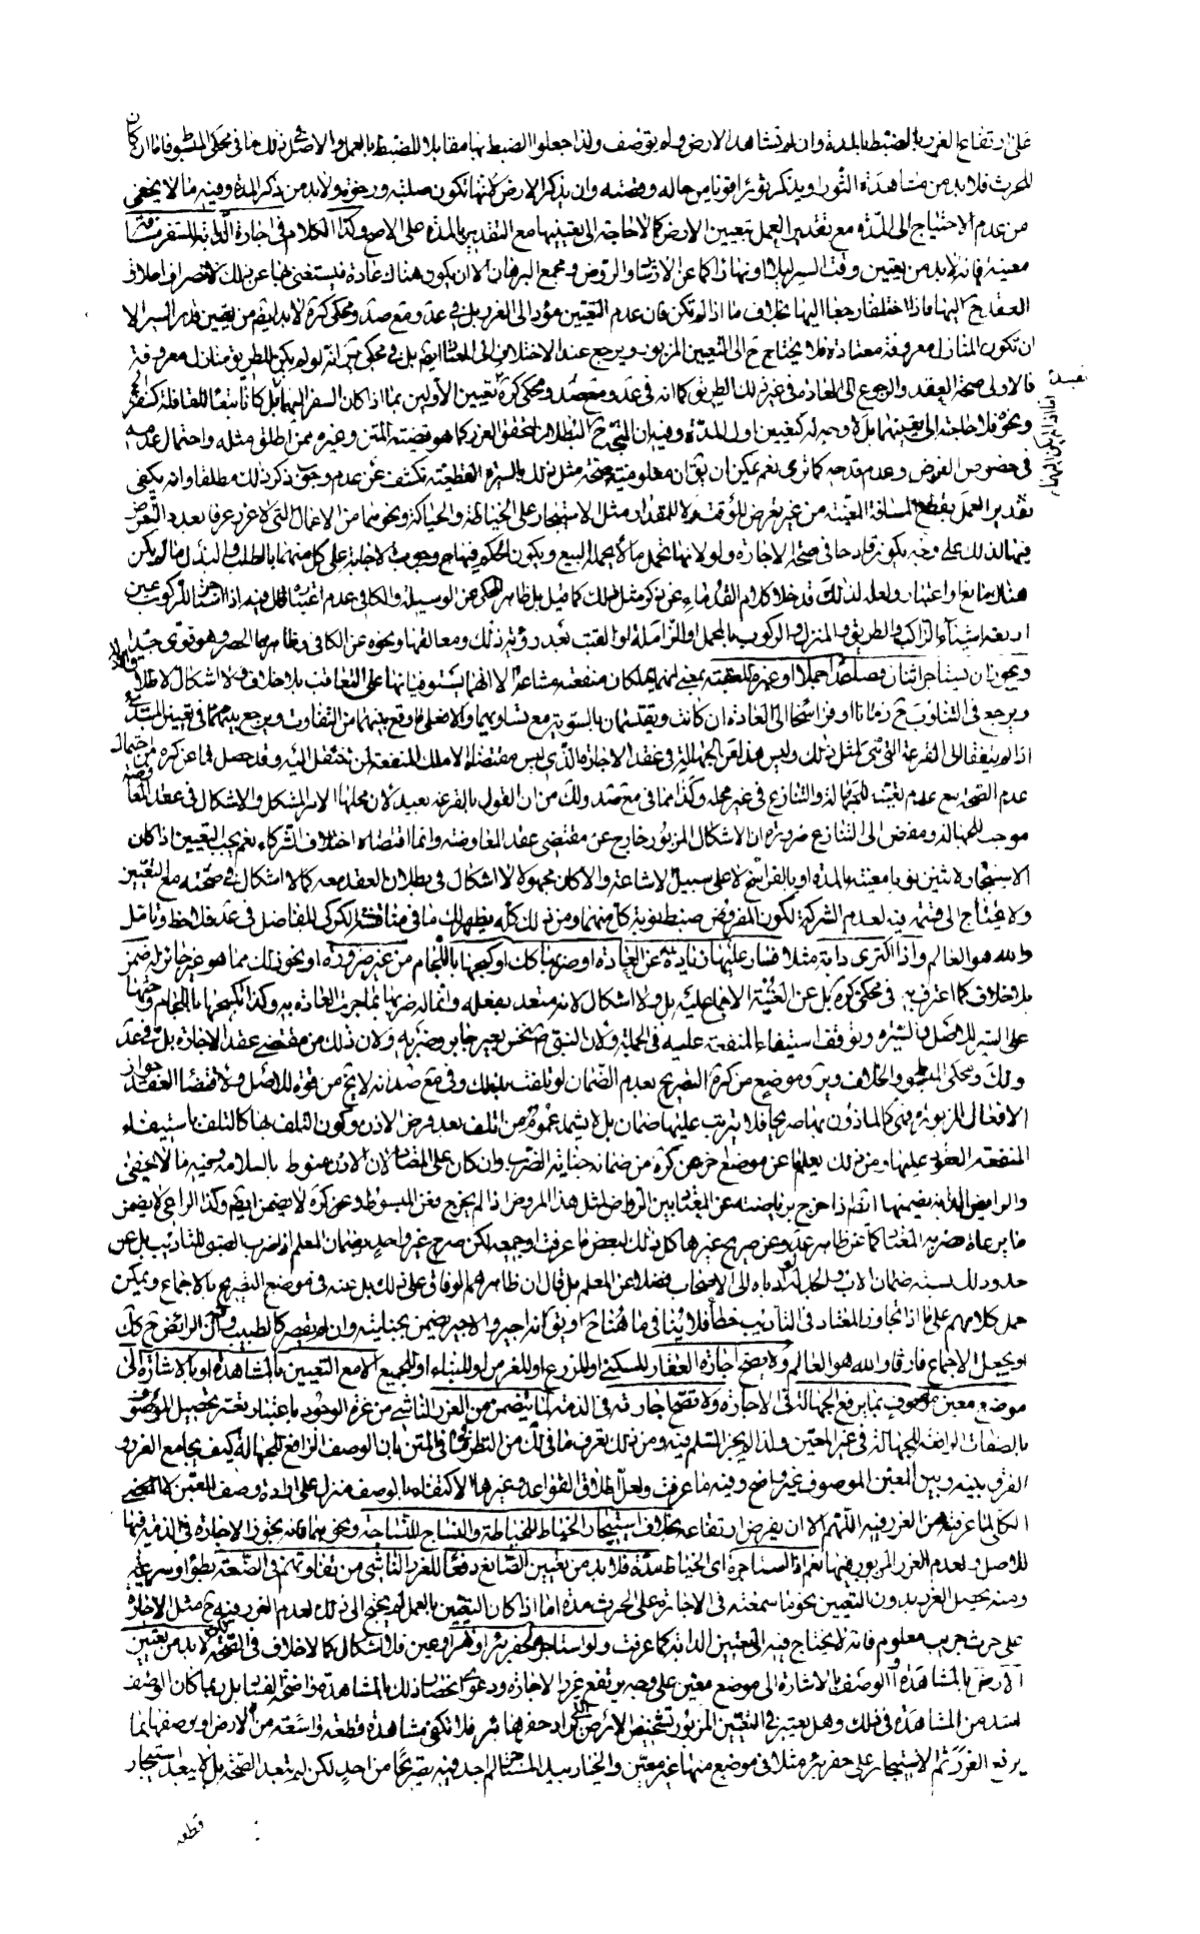 على ارتفاع الغرر بالضبط بالمدة وان لم تشاهد الارض ولم توصف ولذا جعلوا الضبط بها مقابلا للضبط بالعمل والاصل في ذلك ما في محكي المبسوط فاما ان كان
للحرث فلا بد من مشاهدة الثور او يذكر ثورا قويا من حاله وقصته وان يذكر الارض لانها تكون صلبة ورخوة ولا بد من ذكر المدة وفيه ما لا يخفى
من عدم الاحتياج الى المدة مع تقدير العمل بتعيين الارض كما لا حاجة الى تعيينها مع التقدير بالمدة على الاصح وكذا الكلام في اجارة الدابة لسفر مسافة
معينة فانه لا بد من تعيين وقت السير ليلا او نهارا كما عن الارشاد والروض ومجمع البرهان الا ان يكون هناك عادة فيستغني بها عن ذلك لانصراف اطلاق
العقد ح اليها فاذا اختلفا رجعا اليها بخلاف ما اذا لم تكن فان عدم التعيين مؤد الى الغرر بل في عد ومع صد ومحكي كرة لا بد ايضا من تعيين قدر السير الا
ان تكون المنازل معروفة معتادة فلا يحتاج ح الى التعيين المزبور ويرجع عند الاختلاف الى المعتاد ايضا بل في محكي ير انه لو لم يكن للطريق منازل معروفة
فالاولى صحة العقد والرجوع الى العادة في غير ذلك الطريق كما انه في عد ومع صد ومحكي كرة تقييد الاولين بما اذا كان السفر اليهما بل كانا تبعا للقافلة كسفر
ونحوه فلا حاجة الى تعيينهما بل لا وجه له كتعيين اول المدة وفيه ان المتجه ح البطلان لتحقق الغرر كما هو قضية المتن وغيره ممن اطلق مثله واحتمال عدمه
في خصوص الفرض وعدم قدحه كما ترى نعم يمكن ان يقال ان معلومية صحة مثل ذلك بالسيرة القطعية تكشف عن عدم وجوب ذكر ذلك مطلقا وانه يكفي
تقدير العمل بقطع المسافة المعينة من غير تعرض للوقت ولا للمقدار مثل الاستيجار على الخياطة والحياكة ونحوهما من الاعمال التي لا غرر عرفا بعدم التعرض
فيها لذلك على وجه يكون قادحا في صحة الاجارة ولو لانها تحمل ما لا يحمله البيع ويكون الحكم فيها ح وجوب الاجابة على كل منهما بالطلب والبذل ما لم يكن
هناك مانع او اعتبار ولعله لذلك قد خلا كلام القدماء عن ذكر مثل ذلك كما قيل بل ظاهر المحكي عن الوسيلة والكافي عدم اعتباره قال فيه اذا استاجر للركوب عين
اربعة اشياء الراكب والطريق والمنزل والركوب بالمحمل والزاملة او القتب بعد رؤية ذلك ومعالقها ونحوه عن الكافي وظاهرهما الحصر وهو قوي جيدا
ويجوز ان يستاجر اثنان فصاعدا جملا او غيره للعقبة بمعنى انهم يملكان منفعته مشاعة الا انهما يستوفيانها على التعاقب بلا خلاف ولا اشكال
ويرجع في التناوب ح زمانا او فراسخا الى العادة ان كانت ويقتسمان بالسوية مع تساويهما والا فعلى ما وقع بينهما من التفاوت ويرجع بينهما في تعيين المبتدئ
اذا لم يتفقا الى القرعة التي هي لمثل ذلك وليس هذا من الجهالة في عقد الاجارة الذي ليس مقتضاه الا ملك المنفعة لمن تنتقل اليه وقد حصل فما عن كرة من احتمال
عدم الصحة مع عدم تعيينه للجهالة والتنازع في غير محله وكذا ما في مع صد وذلك من ان القول بالقرعة بعيد لان محلها الامر المشكل والاشكال في عقد المعاوضة
موجب للجهالة ومفض الى التنازع ضرورة ان الاشكال المزبور خارج عن مقتضى عقد المعاوضة وانما اقتضاه اختلاف الشركاء نعم يجب التعيين اذا كان
الاستيجار لاثنين نوبا معينة بالمدة او بالفراسخ لا على سبيل الاشاعة والا كان مجهولا لا اشكال في بطلان العقد معه كما لا اشكال في صحته مع التعيين
ولا يحتاج الى قسمة فيه لعدم الشركة لكون المفروض ضبط نوبة كل منهما ومن ذلك كله يظهر لك ما في مناقشة الكركي للفاضل في عد فلاحظ وتامل
والله هو العالم واذا اكترى دابة مثلا فسار عليها زيادة عن العادة او ضربها كك او كبحها باللجام من غير ضرورة او نحو ذلك مما هو غير جائز له ضمن
بلا خلاف كما اعترف به في محكي كرة بل عن الغنية الاجماع عليه بل ولا اشكال لانه متعد بفعله وانما له ضربها بما جرت العادة به وكذا تكبيحها باللجام وحثها
على السير للاصل والسيرة وتوقف استيفاء المنفعة عليه في الجملة ولان النبي ص نخس بعير جابر وضربه ولان ذلك من مقتضى عقد الاجارة بل في عد
ولك ومحكي المبسوط والخلاف ويرو موضع من كرة التصريح بعدم الضمان لو تلفت بذلك وفي مع صد انه لا يخ من قوة للاصل ولاقتضاء العقد جواز
الافعال المزبورة فهي كالماذون بها صريحا فلا يترتب عليها ضمان بل لا يشمله عموم من اتلف بعد فرض الاذن وكون التلف بها كالتلف باستيفاء
المنفعة المعقود عليها ومن ذلك يعلم ما عن موضع اخر عن كرة من ضمانه جناية الضرب وان كان على المعتاد لان الاذن منوط بالسلامة وفيه ما لا يخفى
والرايض للدابة يضمنها ايضا اذا خرج برياضته عن المعتاد بين الرواض لمثل هذا المروض اذا لم يخرج فعن المبسوط وعن كرة لا يضمن ايضا وكذا الراعي لا يضمن
ما يرعاه ضربه المعتاد كما عن ظاهر عد وعن صريح غيرها كل ذلك لبعض ما عرفت او جميعه لكن صرح غير واحد بضمان المعلم لو ضرب الصبي للتاديب بل عن
حدود لك نسبة ضمان الاب والجد له لو ادباه الى الاصحاب فضلا عن المعلم بل قال ان ظاهرهم الوفاق على ذلك بل عنه في موضع التصريح بالاجماع ويمكن
حمل كلامهم على ما اذا تجاوز المعتاد في التاديب خطأ فلا ينافي ما هنا ح او يق انه اجير والاجير يضمن بجنايته وان لم يقصر كالطبيب وفي ان الرائض ح كك
او يجعل الاجماع فارقا والله هو العالم ولا يصح اجارة العقار للسكنى او للزرع او للغرس او للبناء او للجميع الا مع التعيين بالمشاهدة او بالاشارة الى
موضع معين موصوف بما يرفع الجهالة في الاجارة ولا تصح اجارته في الذمة لما يتضمن من الغرر الناشي من عزة الوجود باعتبار رغبة تحصيل الموصوف
بالصفات الرافعة للجهالة في غير المعين ولذا لا يجوز السلم فيه ومن ذلك يعرف ما في لك من النظر في ما في المتن بان الوصف ان رافع للجهالة كيف يجامع الغرر و
الفرق بينه وبين المعين الموصوف غير واضح وفيه ما عرفت ولعل اطلاق القواعد وغيرها الاكتفاء بالوصف منزل على ارادة وصف المعين لا الشخصي
الكلي لما عرفت من الغرر فيه اللهم الا ان يفرض ارتفاعه بخلاف استيجار الخياط للخياطة والنساج للنساجة ونحوهما فانه يجوز الاجارة في الذمة فيها
للاصل ولعدم الغرر المزبور فيها نعم اذا استاجره اي الخياط مدة فلا بد من تعيين الصانع دفعا للغرر الناشي من تفاوتهم في الصنعة بطؤا وسرعة
ومنه يحصل الغرر بدون التعيين نحو ما سمعته في الاجارة على الحرث مدة اما اذا كان التعيين بالعمل لم يحتج الى ذلك لعدم الغرر فيه ح مثل الاجارة
على حرث جريب معلوم فانه لا يحتاج فيه الى تعيين الدابة كما عرفت ولو استاجره لحفر بئر او نهر او عين فلا اشكال كما لا خلاف في الصحة لا بد من تعيين
الارض بالمشاهدة او الوصف بالاشارة الى موضع معين على وجه يرتفع غرر الاجارة ودعوى انحصار ذلك بالمشاهدة واضحة الفساد بل ربما كان الوصف
اشد من المشاهدة في ذلك وهل يعتبر في التعيين المزبور تشخيص الارض التي يراد حفرها بئرا فلا تكفي مشاهدة قطعة واسعة من الارض او يوصفها بما
يرفع الغرر ثم الاستيجار على حفر بئر مثلا في موضع منها غير معين والخيار بيد المستاجر لم اجد فيه تصريحا من احد لكن ليس ببعيد الصحة بل لا يبعد استيجار
قطعه